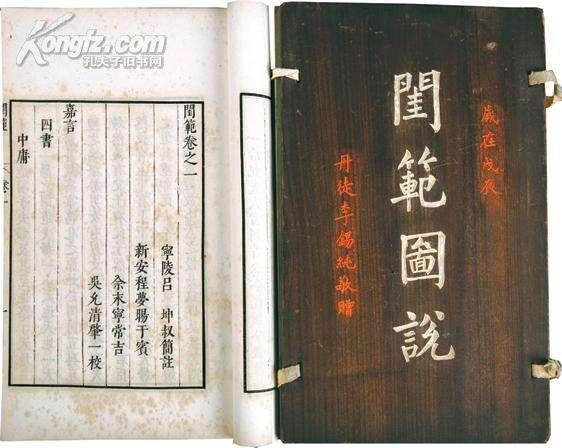 Kongfz.com
孔夫子旧书网
閨範卷之一
寧陵呂　坤叔簡註
新安程夢暘于賓
余永寧常吉
吳允清肇一校
嘉言
四書
中庸
歲在戊辰
閨範圖說
丹徒李錫純敬贈